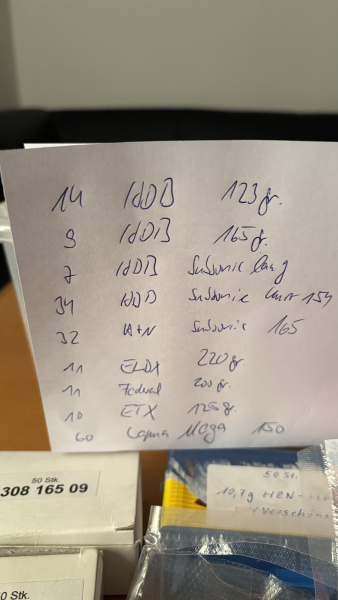 14 HDB 123 gr.
9 HDB 165 gr.
7 HDB Subsonic lang
34 HDB Subsonic 154
32 H+N Subsonic 165
11 ELDX 220 gr.
11 Federal 200 gr.
10 ETX 125 gr.
60 Lapua Mega 150
50 Stk.
308 165 09
50 St.
10,7g H&N
50 Stk.